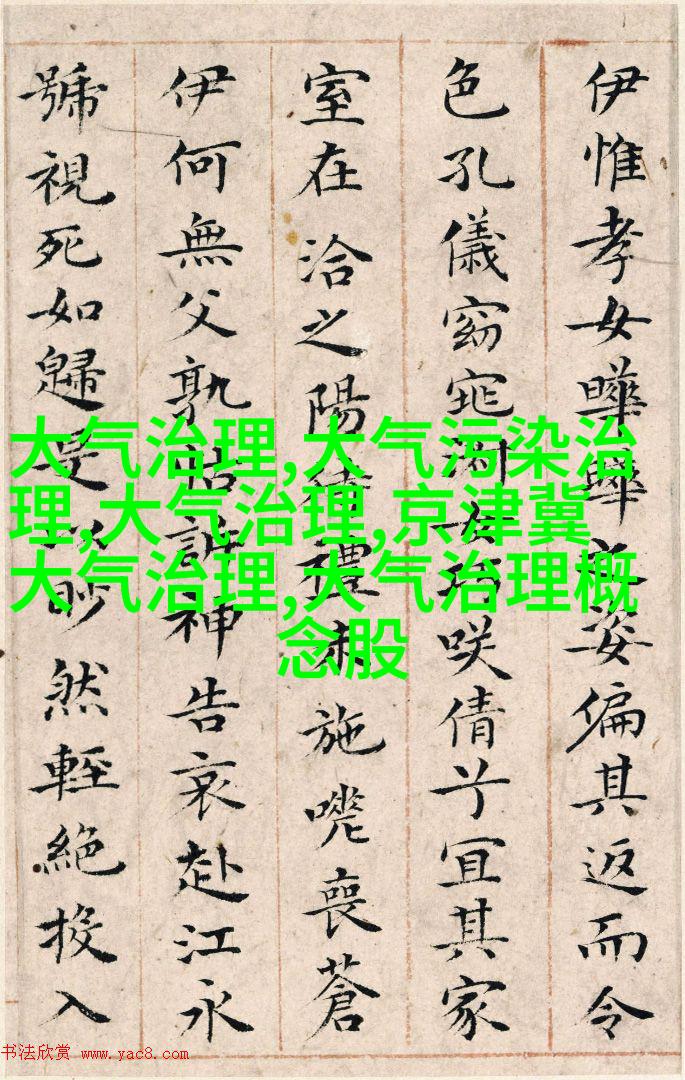 伊惟孝女曄曄之姿偏其返而令
色孔儀窈窕淑女巧咲倩兮宜其家
室在洽之陽待禮未施嗟喪蒼
伊何無父孰怙訴神告哀赴江永
號視死如歸是以眇然輕絕投入
大气治理,大气污染治
理,大气治理,京津冀
大气治理,大气治理概
念股
书法欣赏 www.yac8.com